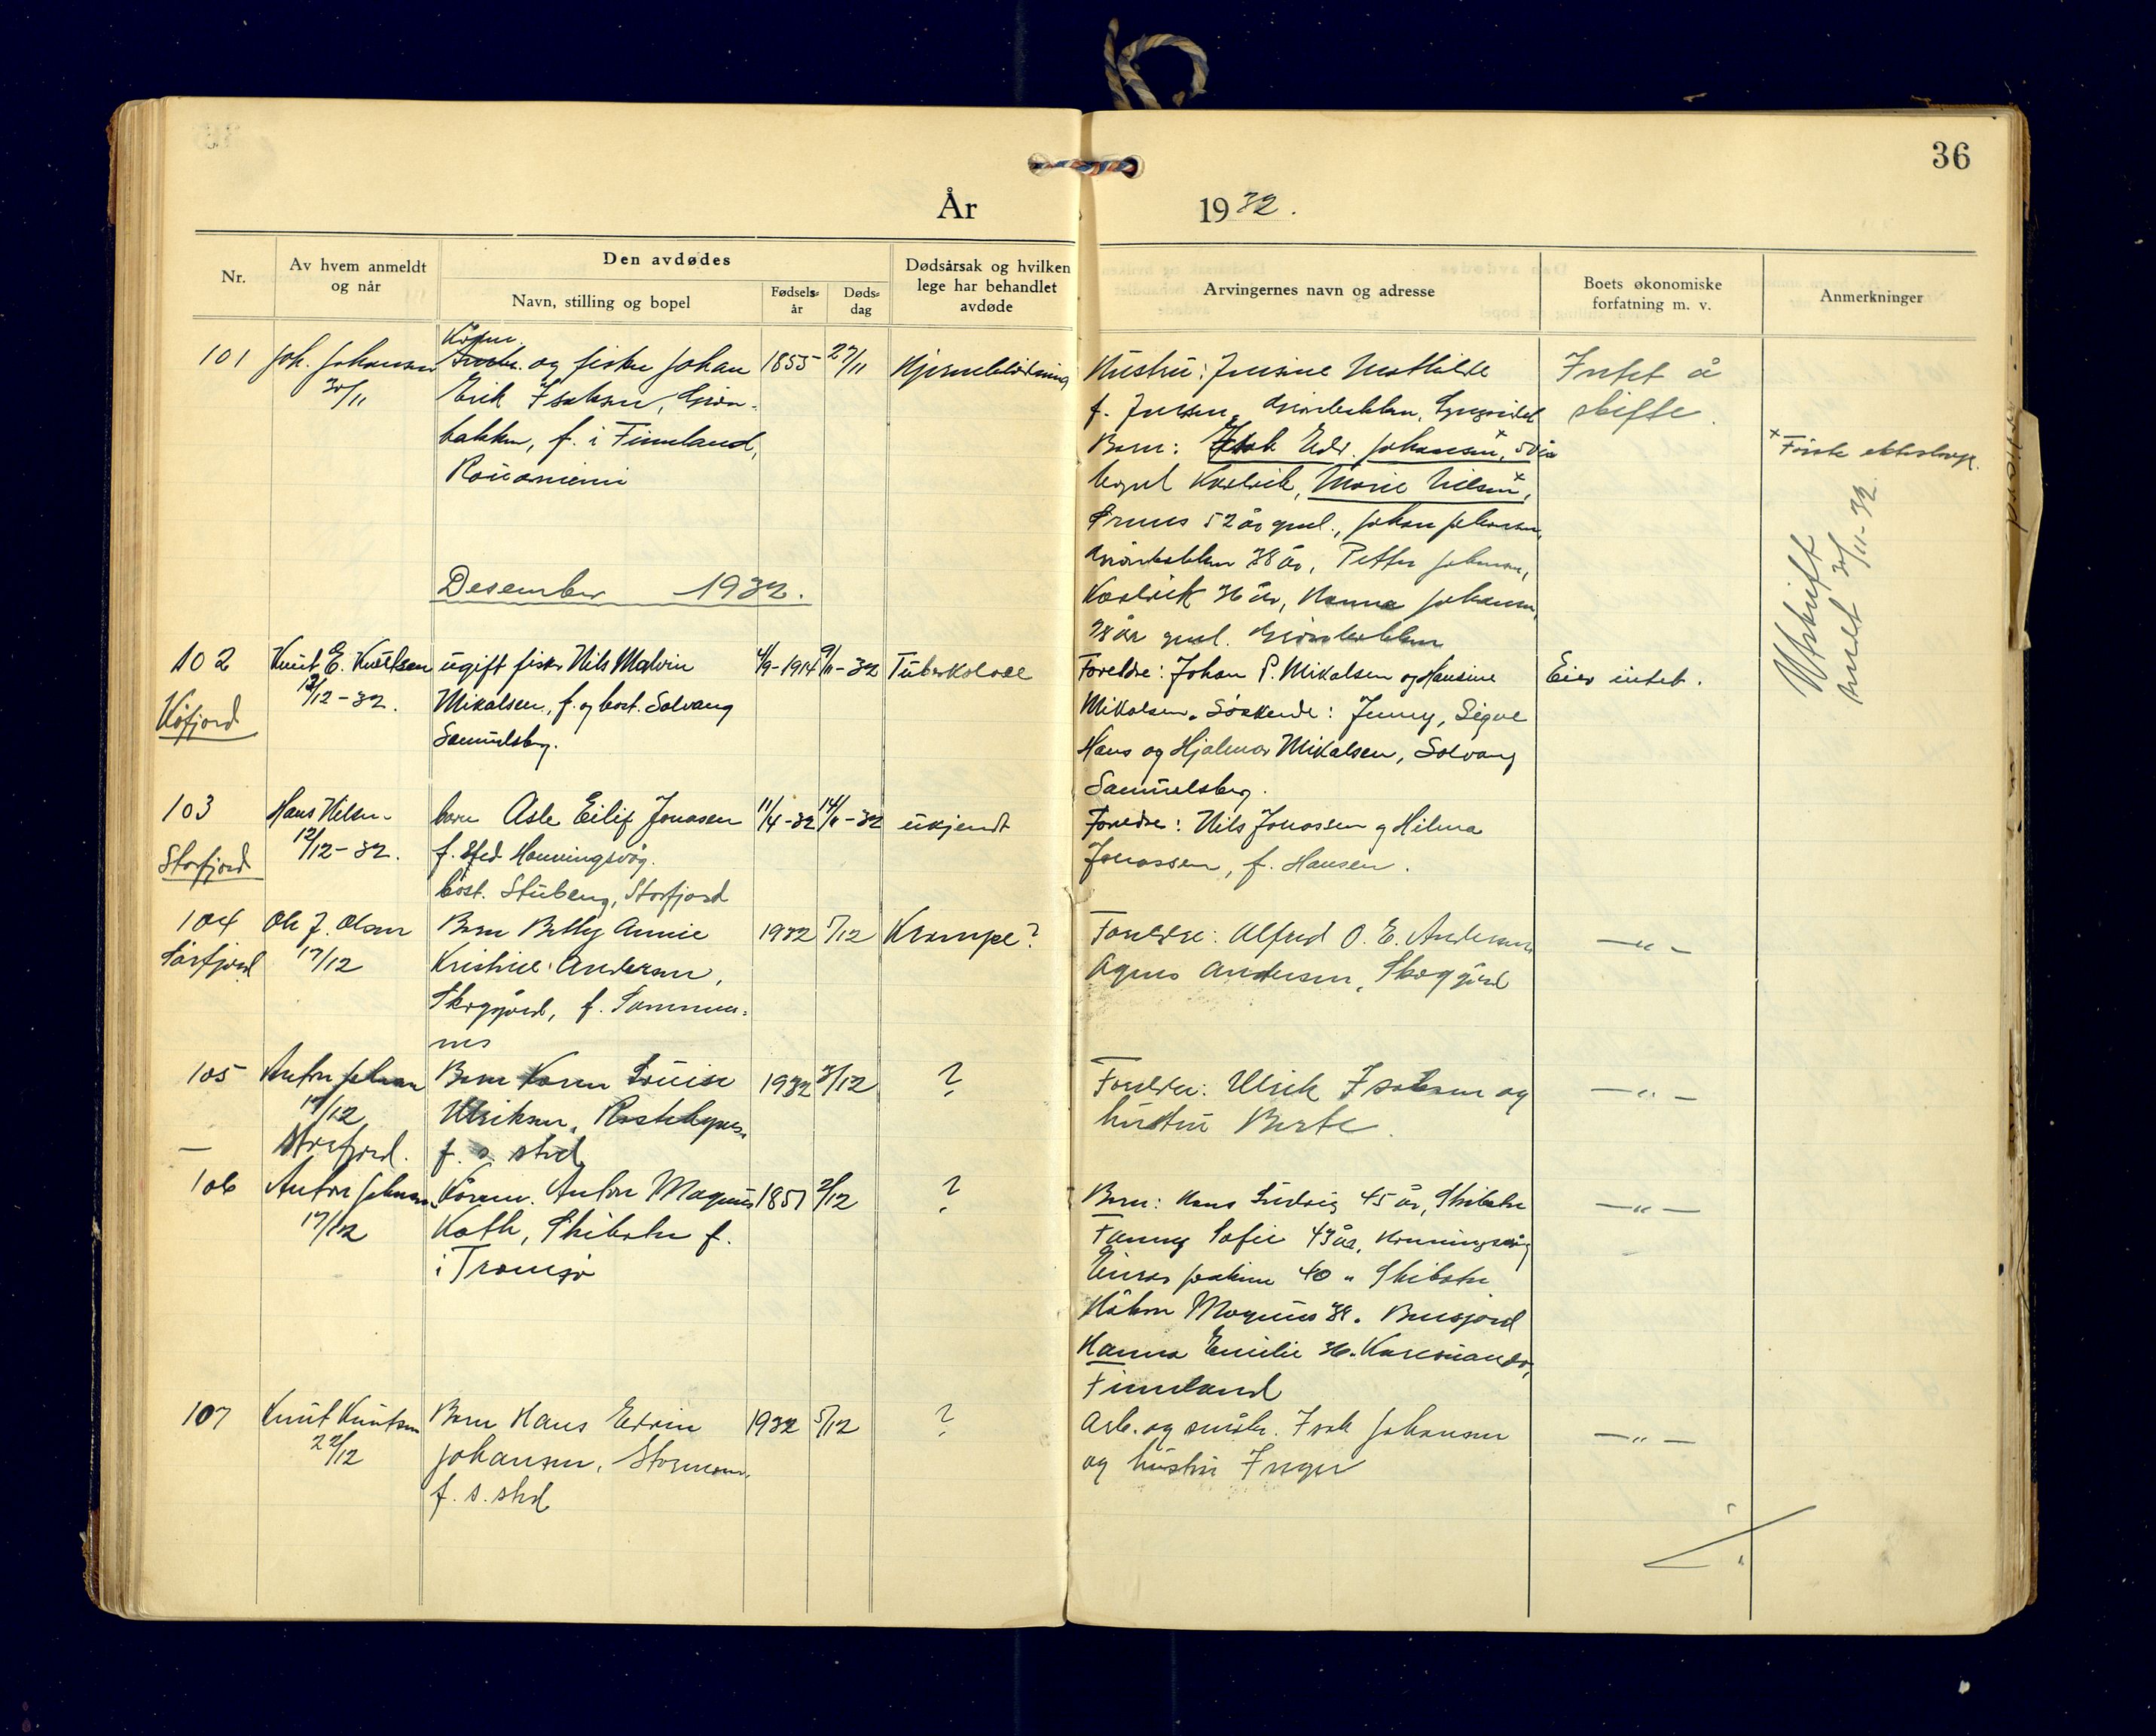 36
År 1932.
Nr.
Av hvem anmeldt
og når
Den avdødes
Navn, stilling og bopel
Fødsels-
år
Døds-
dag
Dødsårsak og hvilken
lege har behandlet
avdøde
Arvingernes navn og adresse
Boets økonomiske
forfatning m. v.
Anmerkninger
101
Joh. Johansen
30/11
og fisker Johan
Erik Isaksen, Grøn-
bakken, f. i Finnland,
Rovaniemi
1855
27/11
Hjerneblødning
Hustru: Mathilde
f. Jensen, Grønbakken, Lyngseidet
Barn: Isak Edv. Johansen x, 50 år
Marie Nilsen x,
52 år gml., Johan Johansen,
Grønbakken 38 år, Petter Johansen,
36 år, Hanna Johansen,
28 år gml. Grønbakken
Intet å
skifte.
x Første ekteskap.
Utskrift
sendt 30/11-32.
Desember 1932.
102
Kåfjord
Knut E. Knutsen
12/12-32.
ugift fisker Nils Malvin
Mikalsen, f. og bost. Solvang
Samuelsberg.
4/9-1914
9/11-32
Tuberkolose
Foreldre: Johan P. Mikalsen og Hansine
Mikalsen. Søskende: Jenny, Signe
Hans og Hjalmar Mikalsen, Solvang
Samuelsberg.
Eier intet.
103
Storfjord
Hans Nilsen
12/12-32.
barn Asle Eilif Jonassen
f. sted Honningsvåg.
bost. Stubeng, Storfjord
11/4-32
14/11-32
ukjendt
Foreldre: Nils Jonassen og Hilma
Jonassen, f. Hansen.
104
Sørfjord
Ole J. Olsen
17/12
Barn Betty Annie
Kristine Andersen,
Skoggård, f.
nes
1932
5/12
Krampe?
Foreldre: Alfred O. E. Andersen
Agnes Andersen, Skoggård
—"—
105
Anton Johansen
17/12
—
Storfjord.
Barn Karen Louise
Ulriksen,
f. s. sted
1932
3/12
?
Foreldre: Ulrik Isaksen og
hustru Berte.
—"—
106
Anton Johansen
17/12
Anton Magnus
Koth, Skibotn f.
i Tromsø
1851
2/12
?
Barn: Hans Ludvig 45 år, Skibotn
Fanny Sofie 43 år, Honningsvåg
Einar Joakim 40 " Skibotn
Håkon Magnus 38 "
Hanna Emilie 36 " Karesuando,
Finnland
—"—
107
Knut Knutsen
22/12
Barn Hans Edvin
Johansen,
f. s. sted
1932
5/12
?
Arb. og småbr. Isak Johansen
og hustru Inger
—"—